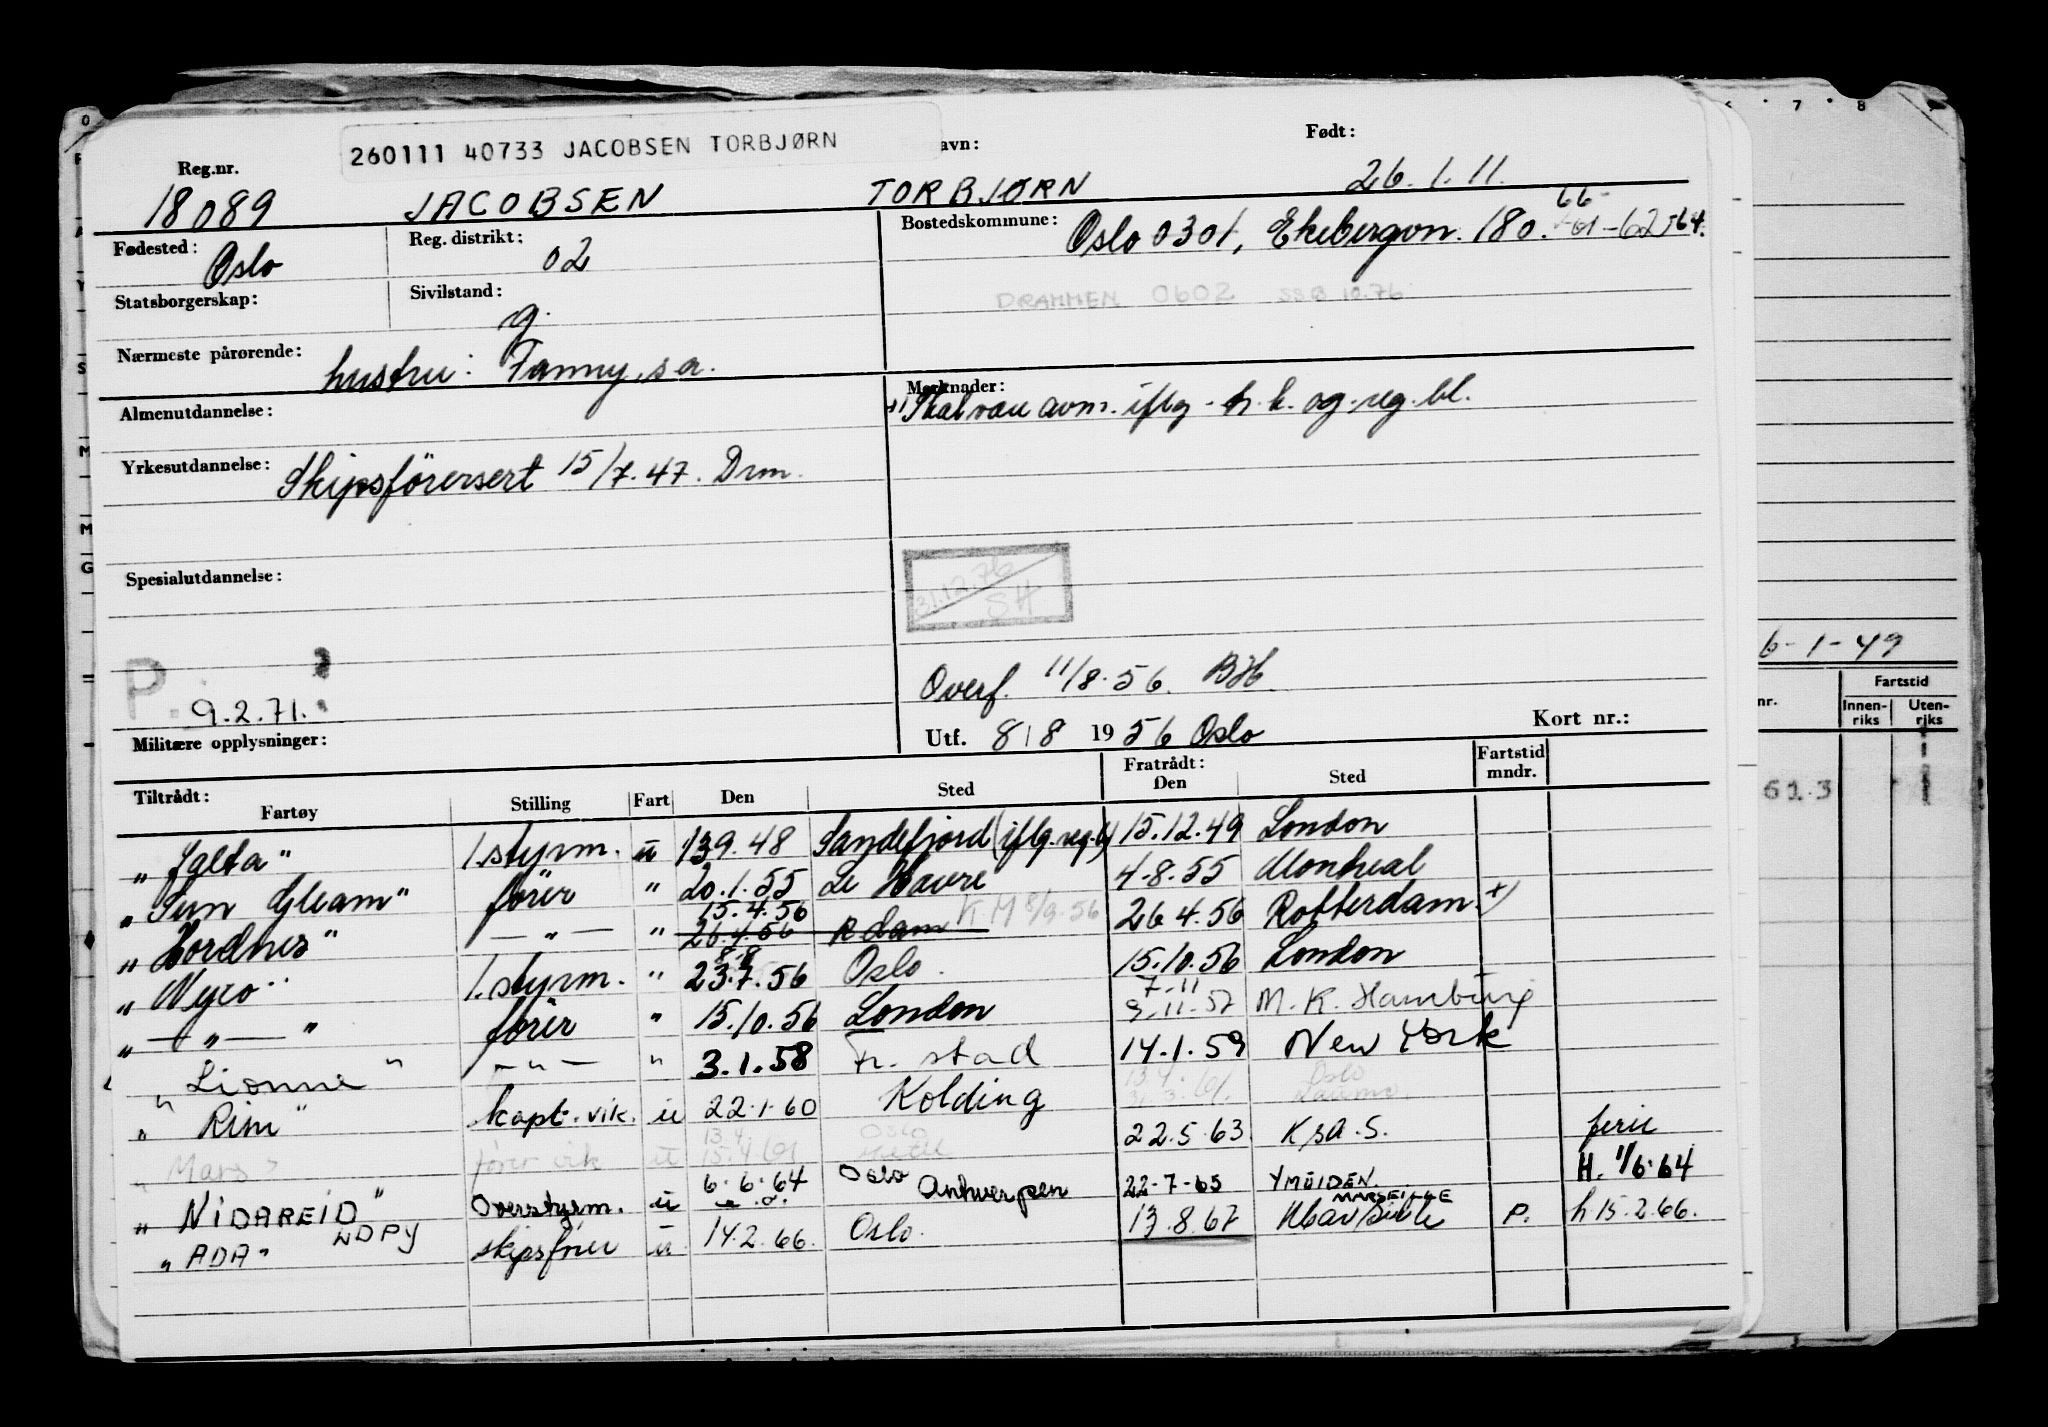 260111 40733 JACOBSEN TORBJØRN
Reg.nr. avn: Født:
18089 JACOBSEN TORBJØRN 26.1.11.
Fødested: Oslo Reg. distrikt: 02 Bostedskommune: Oslo 0301, Ekebergvn. 180. 66- 61-62-64.
Statsborgerskap: Sivilstand: g. DRAMMEN 0602 SSB 10.76
Nærmeste pårørende: hustru: Fanny, s.a.
Almenutdannelse: Merknader: +) Skal være avm. iflg. h.k. og reg.bl.
Yrkesutdannelse: Skipsførersert 15/7.47. Drm.
Spesialutdannelse: 31.12.76 SH
P. 9.2.71. Overf. 11/8.56. BH
Militære opplysninger: Utf. 8/8 1956 Oslo Kort nr.:
Tiltrådt: Fratrådt: Fartstid mndr.
Fartøy Stilling Fart Den Sted Den Sted
"Jalta" 1.styrm. u 13.9.48 Sandefjord (iflg.reg.bl) 15.12.49 London
"Sun Gleam" fører " 20.1.55 Le Havre 4.8.55 Montreal
"Hordnes" — " — " 15.4.56 26.4.56 Rdam K.M 8/9.56 26.4.56 Rotterdam +)
"Nyco" 1.styrm. " 8.8 23.7.56 Oslo. 15.10.56 London
" — " — " fører " 15.10.56 London 7.11 9.11.57 M.K. Hamburg
"Lionne" — " — " 3.1.58 Fr. stad 14.1.59 New York
"Rim" kapt. vik. u 22.1.60 Kolding 13.4.61. Oslo
"Mars" fører vik u 13.4. 15.4.61 Oslo 22.5.63 K.s.a.S. ferie
"NIDAREID" Overstyrm. u 6.6.64 Oslo Antwerpen 22-7-65 YMUIDEN. H. 11/6.64
"ADA" LDPY skipsfører u 14.2.66. Oslo. 13.8.67 MARSEILLE P. h.15.2.66.
6-1-49
nr. Fartstid
Innen-riks Uten-riks
61.3